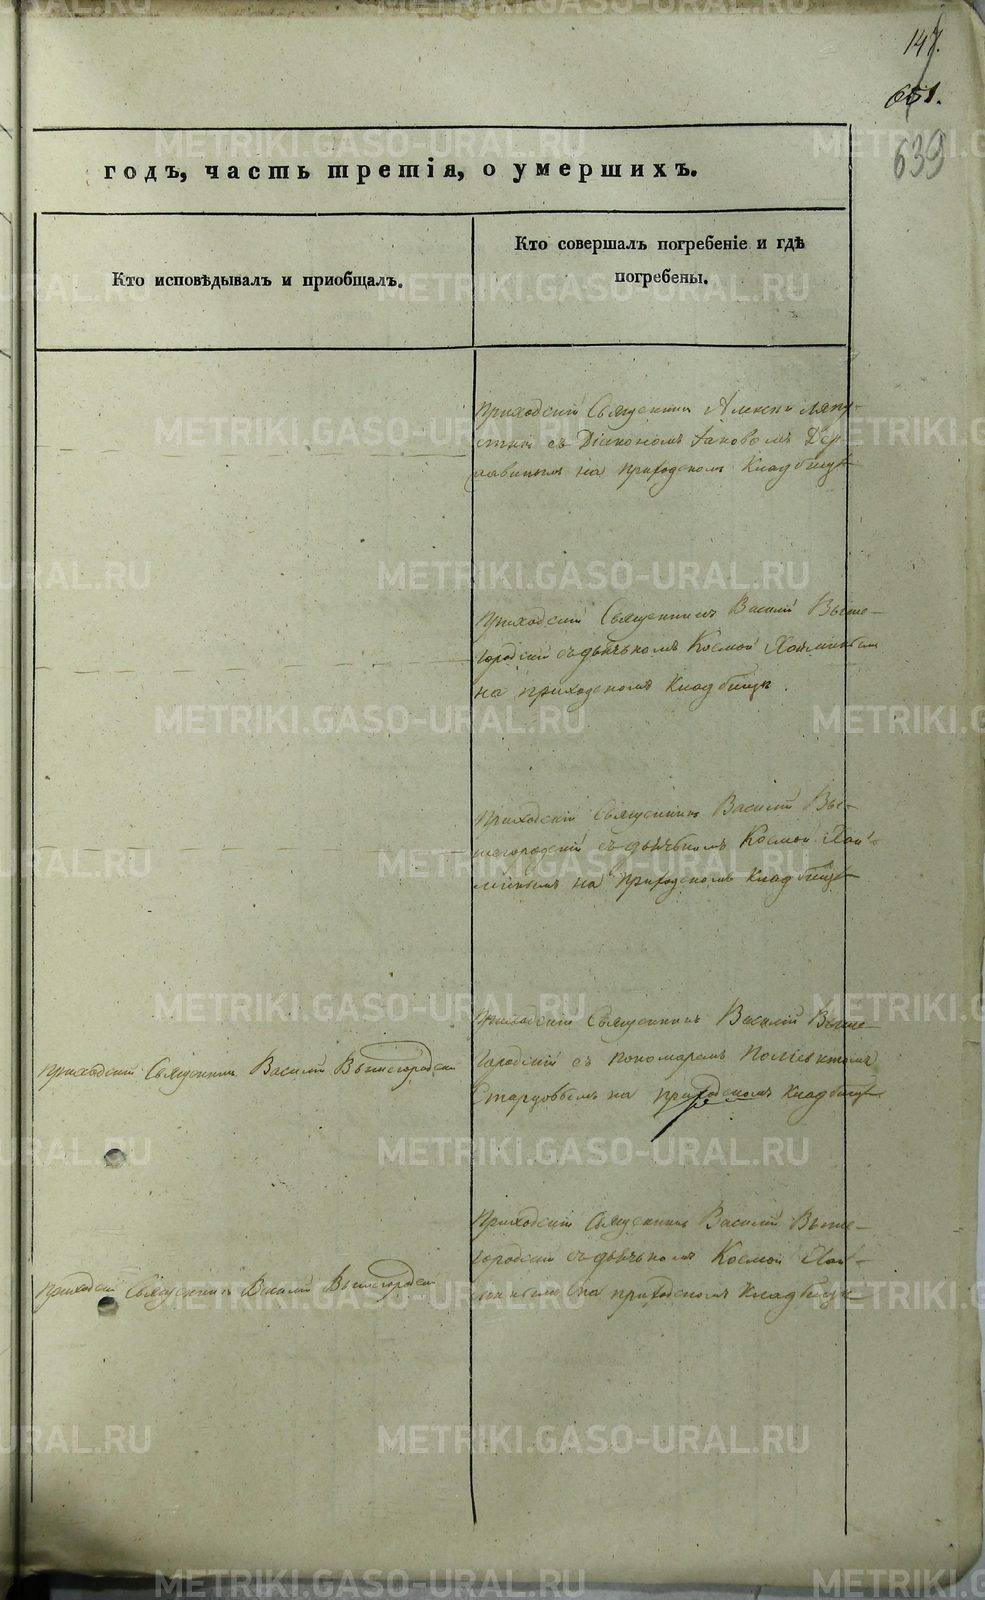 147.
651.
639
годъ, часть третія, о умершихъ.
Кто исповѣдывалъ и приобщалъ.
Кто совершалъ погребеніе и гдѣ
погребены.
Приходскій Священникъ Алексій Ляпу-
стинъ съ Діакономъ Іаковомъ Дер-
жавинымъ на приходскомъ кладбищѣ
Приходскій Священникъ Василій Выше-
городскій съ дьячькомъ Космой
на приходскомъ кладбищѣ.
Приходскій Священникъ Василій Вы-
шегородскій съ дьячькомъ Космой
на приходскомъ кладбищѣ
Приходскій Священникъ Василій Вышегородскій
Приходскій Священникъ Василій Выше-
городскій съ пономаремъ Поліевктомъ
Старцовымъ на приходскомъ кладбищѣ
Приходскій Священникъ Василій Вышегородскій
Приходскій Священникъ Василій Выше-
городскій съ дьячькомъ Космой
на приходскомъ кладбищѣ
METRIKI.GASO-URAL.RU